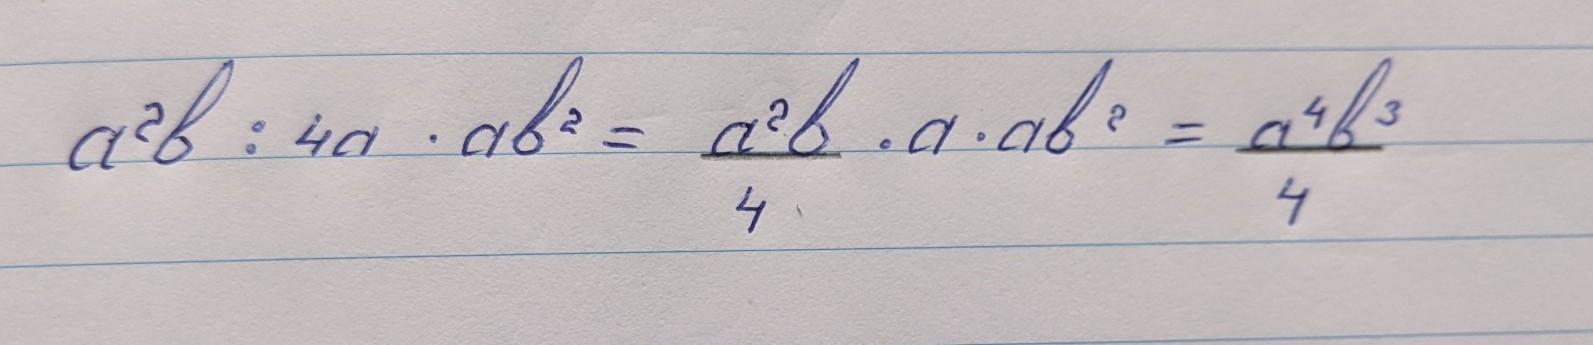 a²b : 4a · ab² = a²b/4 · a · ab² = a⁴b³/4